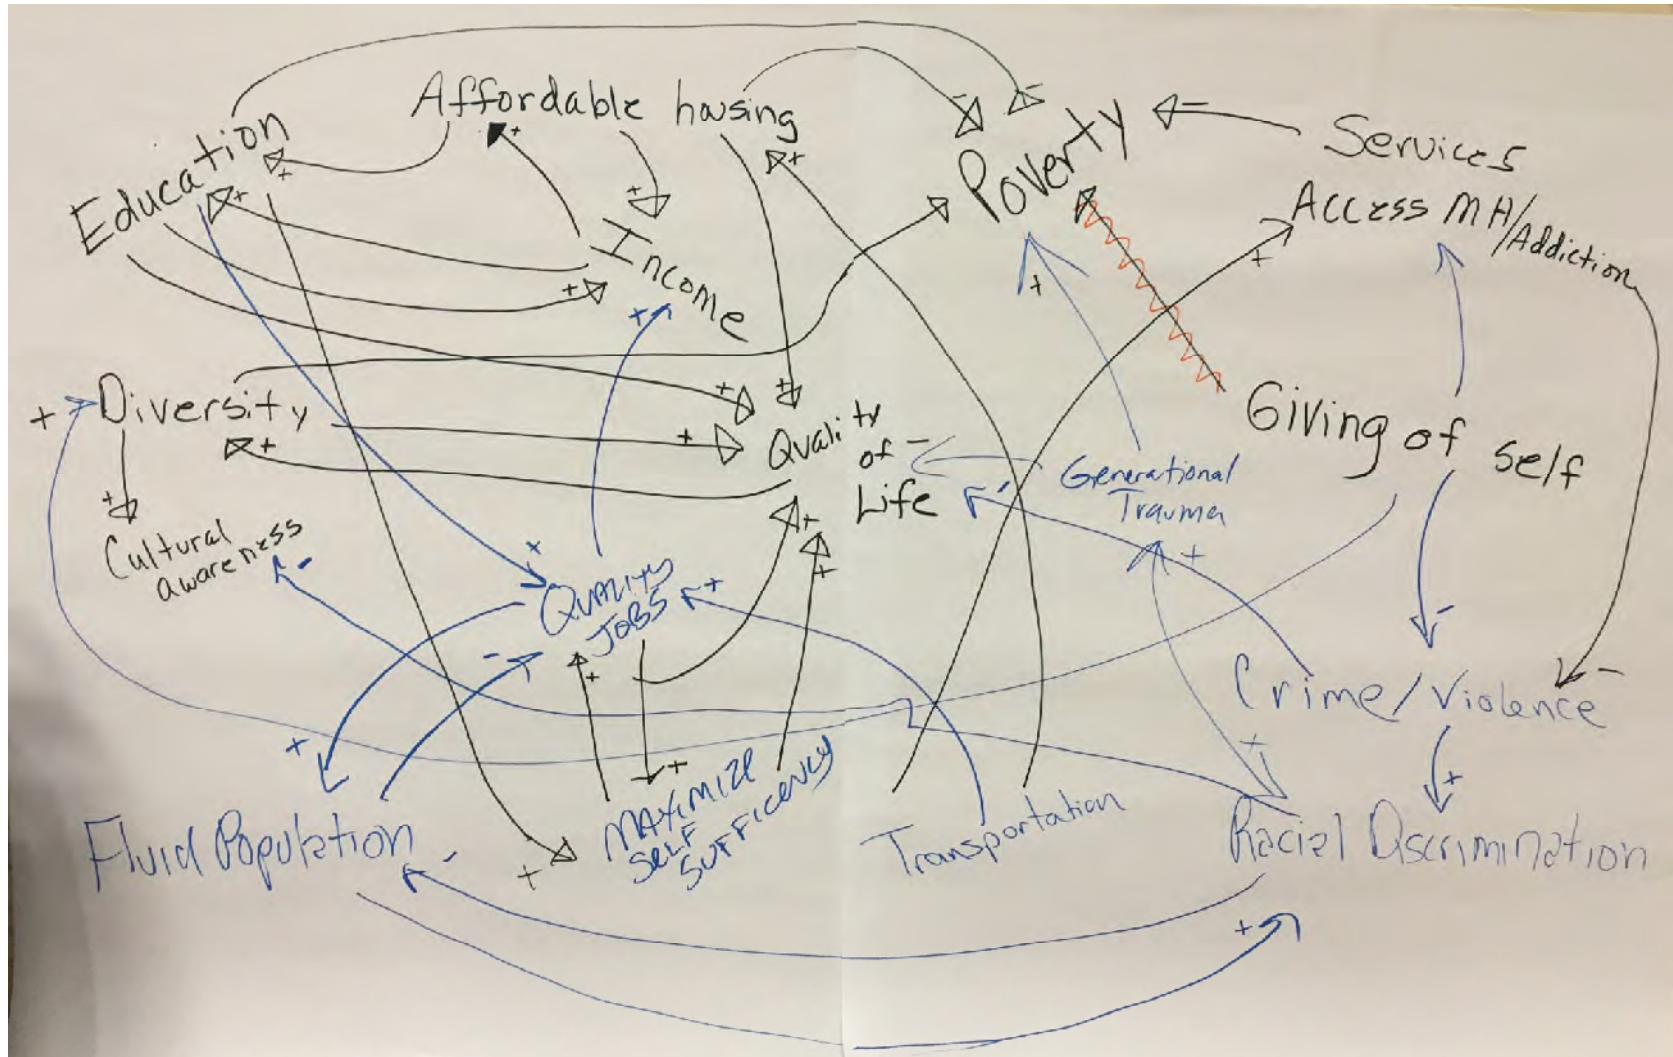 Affordable housing
Education
Poverty
Services
Access MH/Addiction
Income
Diversity
Quality
of
Life
Giving of self
Generational
Trauma
Cultural
awareness
QUALITY
JOBS
Crime/Violence
Fluid Population
MAXIMIZE
SELF
SUFFICENCY
Transportation
Racial Discrimination